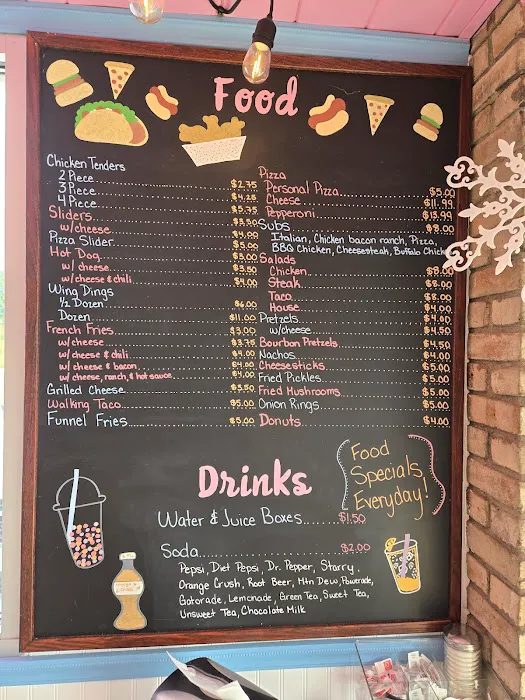 Food
Chicken Tenders
2 Piece $2.75
3 Piece $4.25
4 Piece $5.75
Sliders $3.50
w/cheese $4.00
Pizza Slider $5.00
Hot Dog $3.00
w/ cheese $3.50
w/ cheese & chili $4.00
Wing Dings
½ Dozen $6.00
Dozen $11.00
French Fries $3.00
w/ cheese $3.75
w/ cheese & chili $4.00
w/ cheese & bacon $4.00
w/ cheese, ranch, & hot sauce $4.00
Grilled Cheese $3.50
Walking Taco $5.00
Funnel Fries $5.00
Pizza
Personal Pizza $5.00
Cheese $11.99
Pepperoni $13.99
Subs $8.00
Italian, Chicken bacon ranch, Pizza,
BBQ Chicken, Cheesesteak, Buffalo Chicken
Salads
Chicken $8.00
Steak $8.00
Taco $8.00
House $4.00
Pretzels $4.00
w/cheese $4.50
Bourbon Pretzels $4.50
Nachos $4.00
Cheesesticks $5.00
Fried Pickles $5.00
Fried Mushrooms $5.00
Onion Rings $5.00
Donuts $4.00
Food
Specials
Everyday!
Drinks
Water & Juice Boxes $1.50
Soda $2.00
Pepsi, Diet Pepsi, Dr. Pepper, Starry,
Orange Crush, Root Beer, Mtn Dew, Powerade,
Gatorade, Lemonade, Green Tea, Sweet Tea,
Unsweet Tea, Chocolate Milk